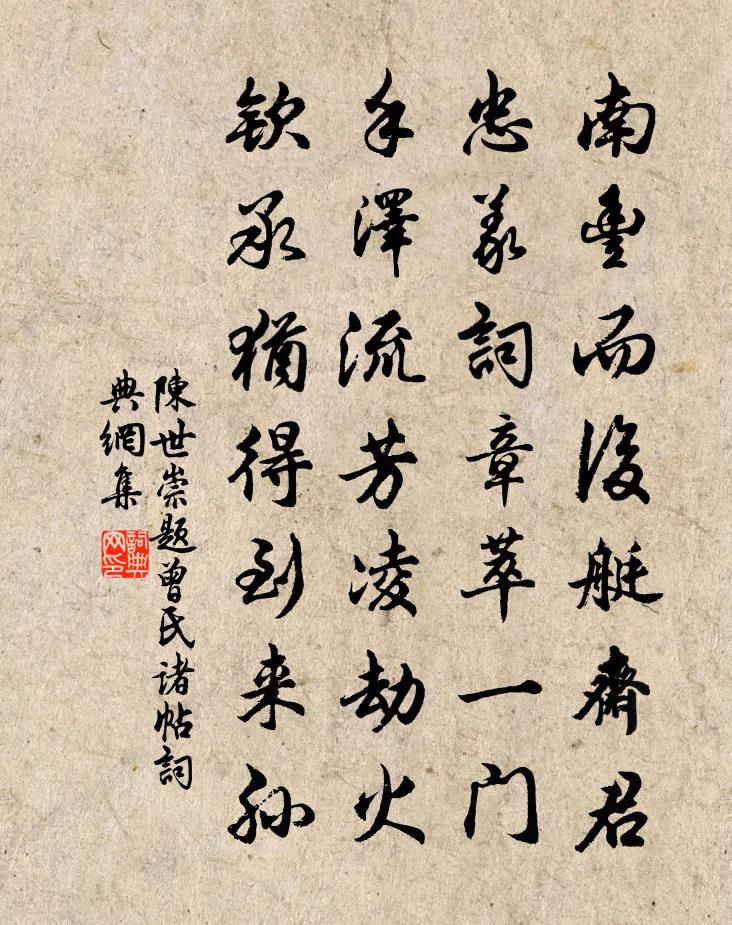 南豐而後艇齋君
忠義詞章萃一門
手澤流芳凌劫火
欽承猶得到来孫
陳世崇題曾氏諸帖詞
典網集
詞典
网印